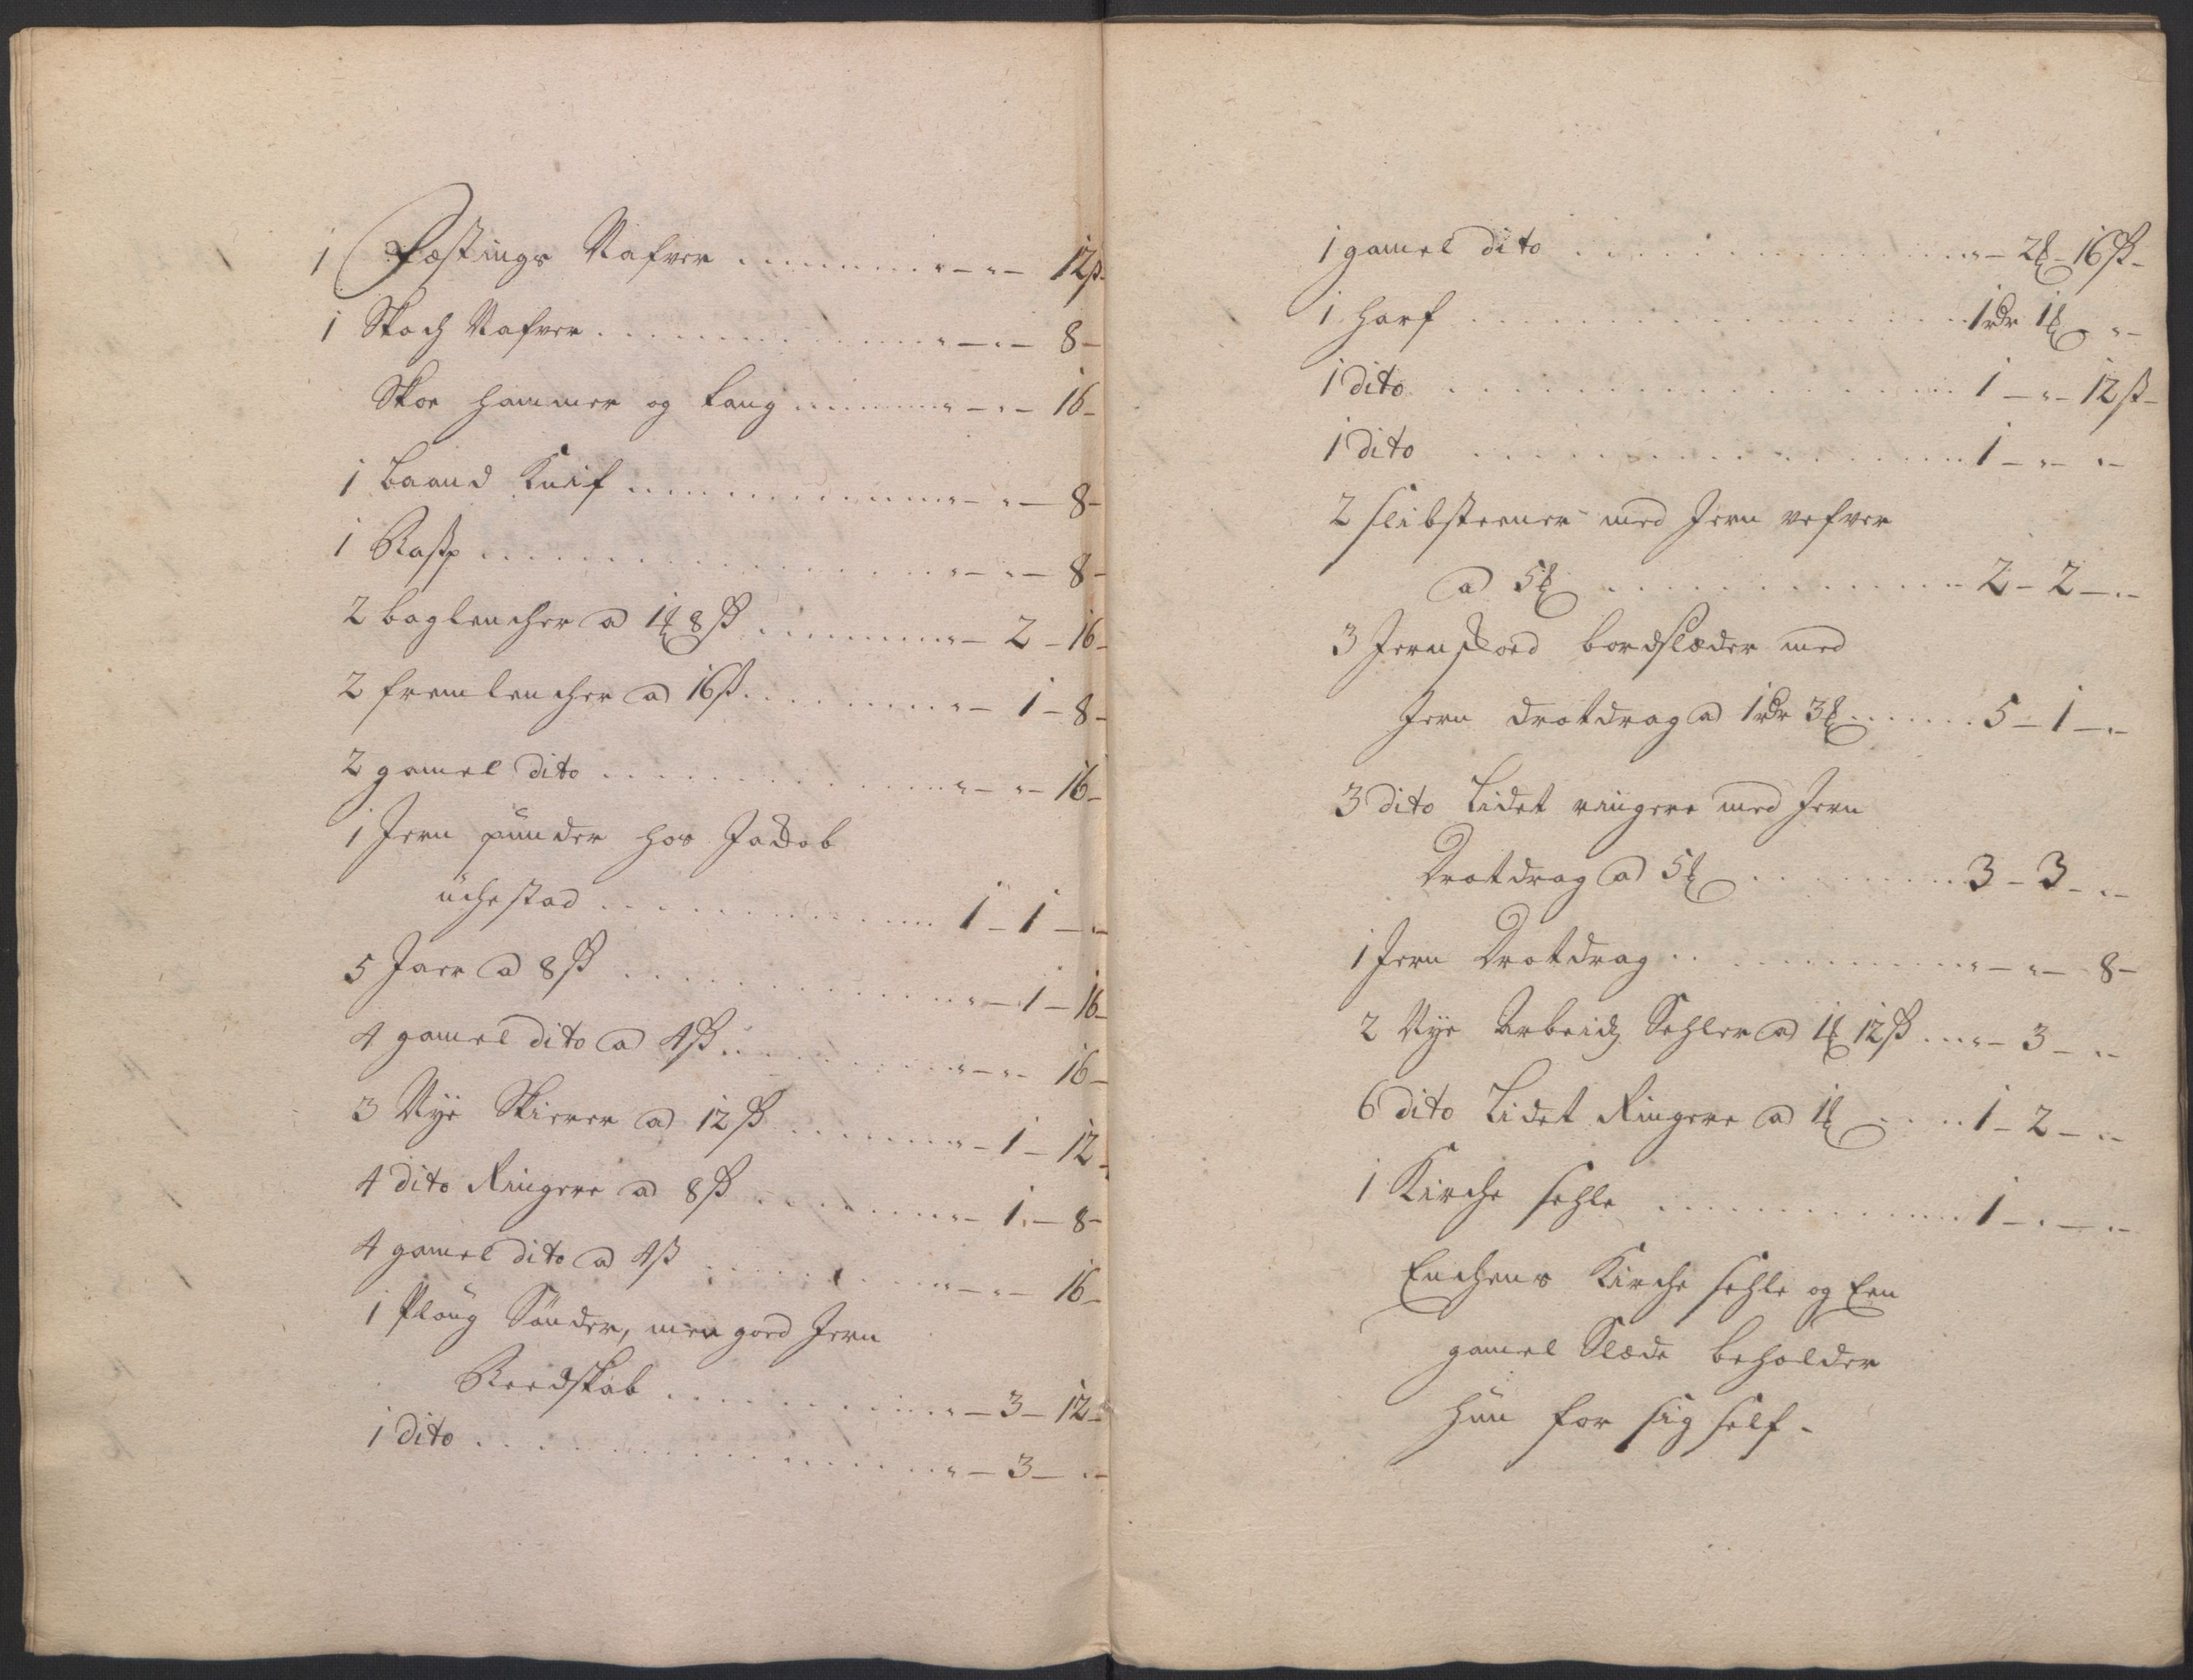 1 Fæstings Nafver ........ " - " - 12 ß
1 Skoch Nafver ........ " - " - 8 -
Skoe hammer og tang ........ " - " - 16 -
1 Baand Knif ........ " - " - 8 -
1 Rasp ........ " - " - 8 -
2 baglencher a 1 ₰ 8 ß ........ " - 2 - 16 -
2 fremlencher a 16 ß ........ " - 1 - 8 -
2 gamel dito ........ " - " - 16 -
1 Jern punder hos Jackob
uchestad ........ 1 - 1 - " -
5 Jaer a 8 ß ........ " - 1 - 16 -
4 gamel dito a 4 ß ........ " - " - 16 -
3 Nye Skierer a 12 ß ........ " - 1 - 12 -
4 dito Ringere a 8 ß ........ " - 1 - 8 -
4 gamel dito a 4 ß ........ " - " - 16 -
1 Ploug Sönder, men goed Jern
Reedskab ........ " - 3 - 12 -
1 dito ........ " - 3 - " -
1 gamel dito ........ " - 2 ₰ - 16 ß -
1 Harf ........ 1 rdr 1 ₰ " -
1 dito ........ 1 - " - 12 ß -
1 dito ........ 1 - " - " -
2 slibsteener med Jern vefver
a 5 ₰ ........ 2 - 2 - " -
3 Jernskoed bordslæder med
Jern drotdrag a 1 rdr 3 ₰ ........ 5 - 1 - " -
3 dito Lidet ringere med Jern
Drotdrag a 5 ₰ ........ 3 - 3 - " -
1 Jern Drotdrag ........ " - " - 8 -
2 Nye Arbeids Sehler a 1 ₰ 12 ß .... " - 3 - " -
6 dito Lidet Ringere a 1 ₰ .... 1 - 2 - " -
1 Kirche sehle ........ 1 - " - " -
Enchens Kirche sehle og Een
gamel Slæde beholder
hun for sig self -